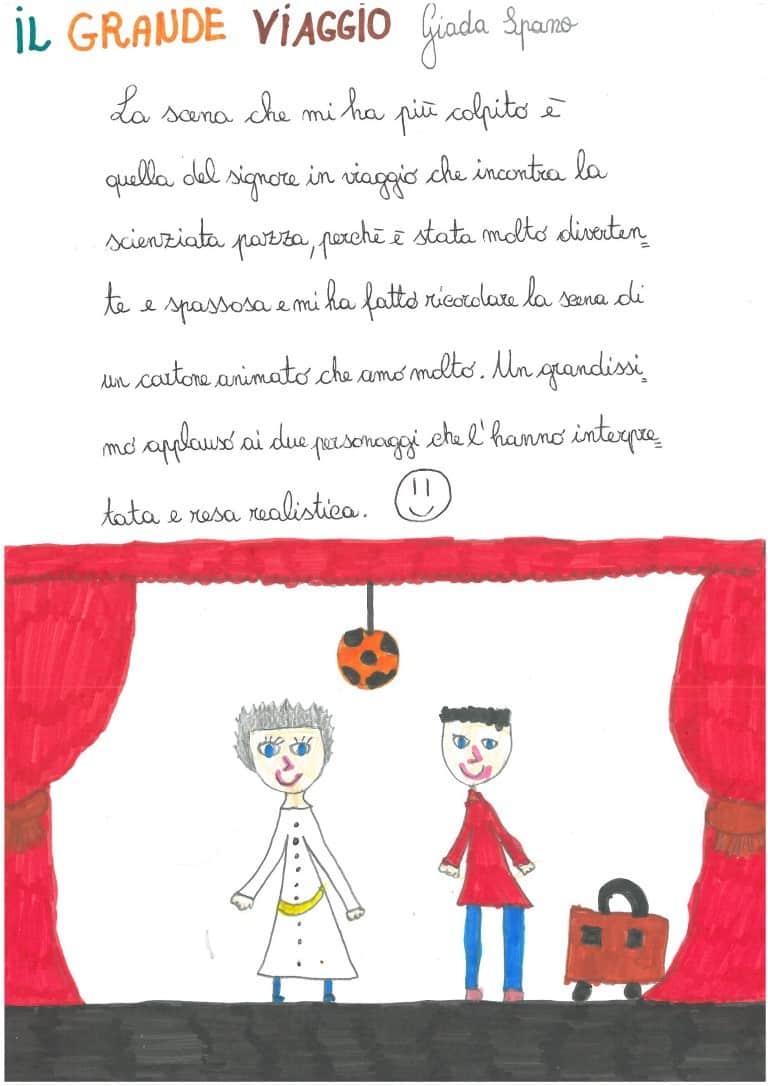 iL GRANDE ViAGGiO Giada Spano
La scena che mi ha più colpito è
quella del signore in viaggio che incontra la
scienziata pazza, perchè è stata molto diverten=
te e spassosa e mi ha fatto ricordare la scena di
un cartone animato che amo molto. Un grandissi=
mo applauso ai due personaggi che l'hanno interpre=
tata e resa realistica.